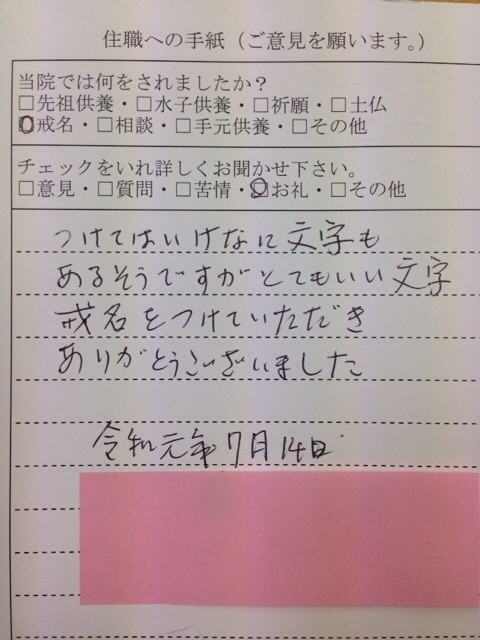 住職への手紙（ご意見を願います。）
当院では何をされましたか？
□先祖供養・□水子供養・□祈願・□土仏
□戒名・□相談・□手元供養・□その他
チェックをいれ詳しくお聞かせ下さい。
□意見・□質問・□苦情・□お礼・□その他
つけてはいけなに文字も
あるそうですがとてもいい文字
戒名をつけていただき
ありがとうございました
令和元年7月14日